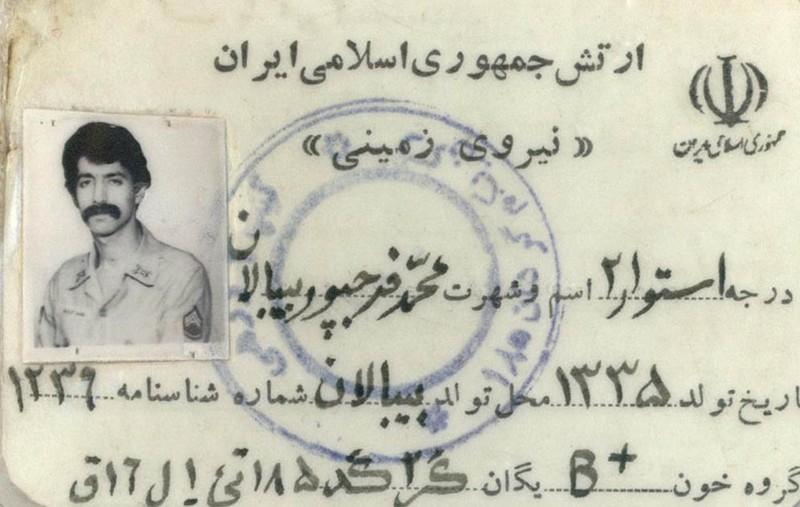 ارتش جمهوری اسلامی ایران
جمهوری اسلامی ایران
« نیروی زمینی »
درجه استوار۲ اسم و شهرت محمد فرجپور بیبالان
تاریخ تولد ۱۳۳۵ محل تولد بیبالان شماره شناسنامه ۱۲۳۹
گروه خون B+ یگان